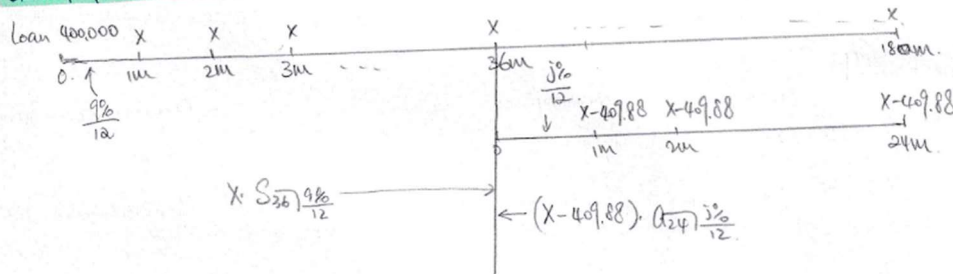 Loan 400,000 X X X X X
0. 1m 2m 3m ... 36m 180m.
9%/12 j%/12 X-409.88 X-409.88 X-409.88
0 1m 2m 24m
X. S36⌉9%/12 (X-409.88). a24⌉j%/12